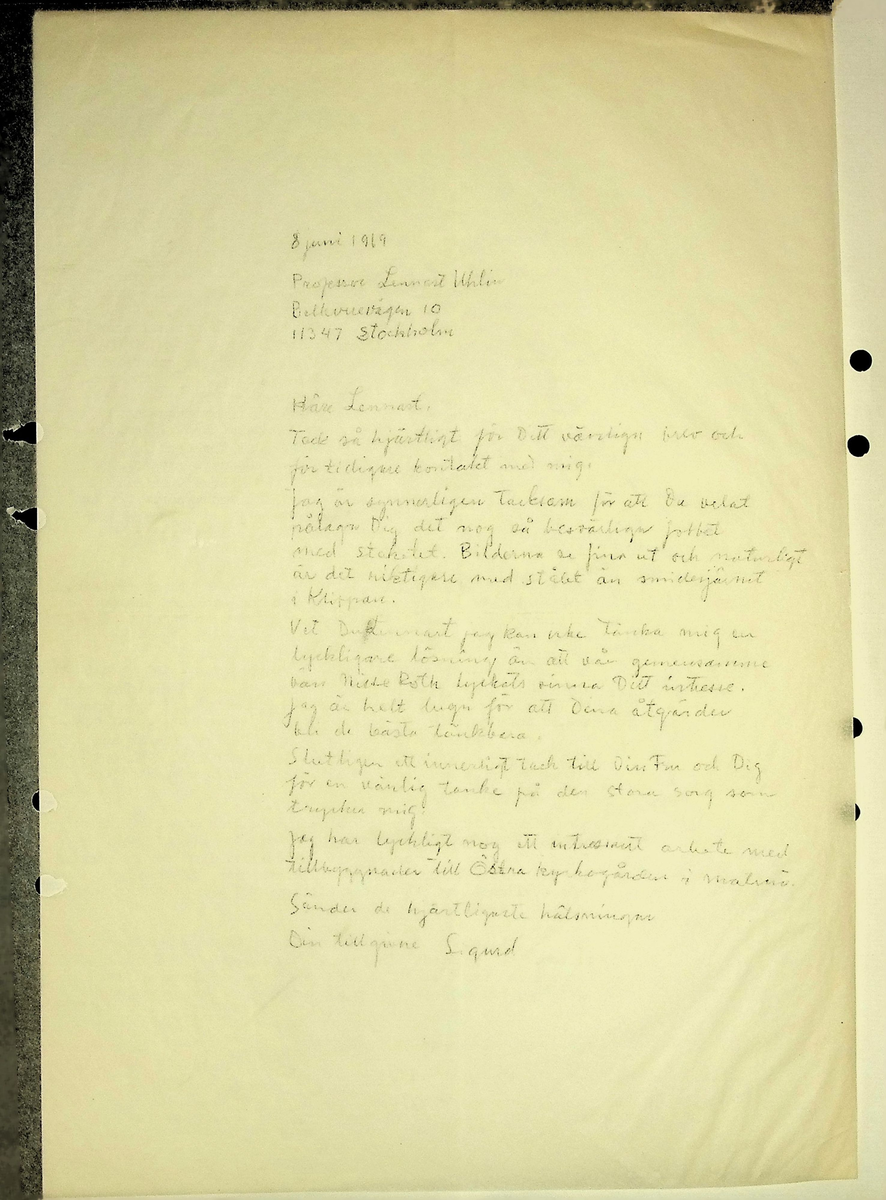 8 juni 1969
Professor Lennart Uhlin
Bellevuevägen 10
11347 Stockholm
Käre Lennart,
Tack så hjärtligt för Ditt vänliga brev och
för tidigare kontakt med mig.
Jag är synnerligen tacksam för att Du velat
pålaga Dig det nog så besvärliga jobbet
med staketet. Bilderna se fina ut och naturligt
är det riktigare med stålet än smidesjärnet
i Klippan.
Vet Du Lennart jag kan icke tänka mig en
lyckligare lösning än att vår gemensamme
vän Nisse Roth lyckats vinna Ditt intresse.
Jag är helt lugn för att Dina åtgärder
bli de bästa tänkbara.
Slutligen ett innerligt tack till Din Fru och Dig
för en vänlig tanke på den stora sorg som
trycker mig.
Jag har lyckligt nog ett intressant arbete med
tillbyggnader till Östra kyrkogården i Malmö.
Sänder de hjärtligaste hälsningar
Din tillgivne Sigurd